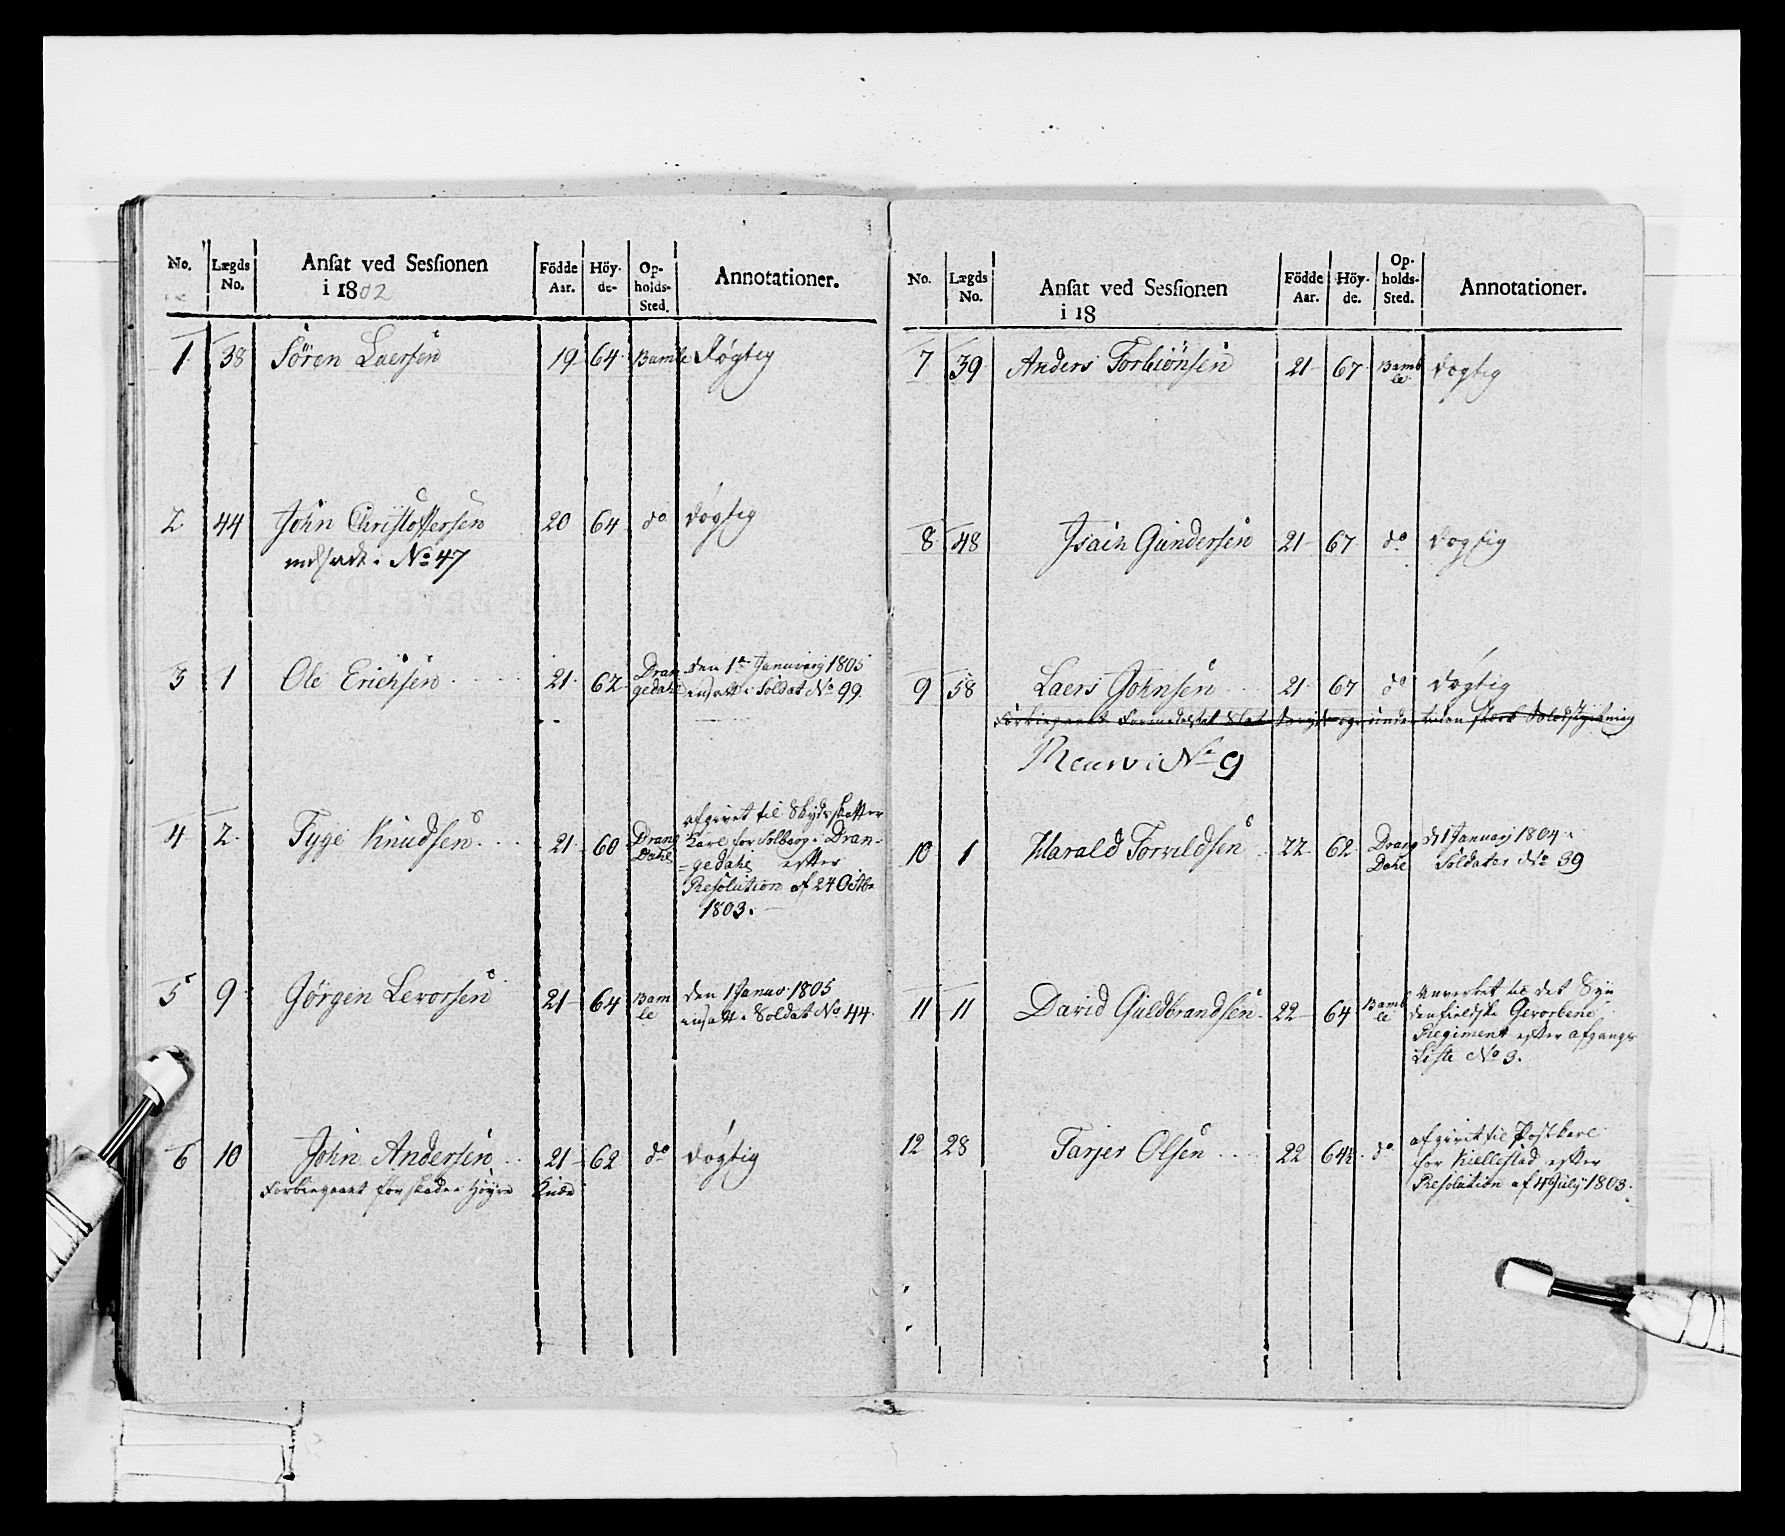 No. Lægds No. Ansat ved Sessionen i 1802 Födde Aar. Höyde- Opholds-Sted. Annotationer.
1 38 Sören Laersen 19 64 Bamle døgtig
2 44 John Christoffersen 20 64 do døgtig
indsadt i No 47
3 1 Ole Erichsen 21 62 Drangedahl den 1te Januarij 1805
ensatt i Soldat No 99
4 2 Tyge Knudsen 21 60 Drang Dahl afgivet til Skydsskaffer
Karl for Solberg i Dran-
=gedahl efter
Resolution af 24 Octbr
1803.
5 9 Jørgen Levorsen 21 64 Bamle den 1 Januar 1805
ensatt i Soldat No 44.
6 10 John Andersen 21 62 do døgtig
Forbiegaaet for skade i Høyre Knæe
No. Lægds No. Ansat ved Sessionen i 18 Födde Aar. Höyde. Opholds-Sted. Annotationer.
7 39 Anders Torbiönsen 21 67 Bamble døgtig
8 48 Isach Gundersen 21 67 do døgtig
9 58 Laers Johnsen 21 67 do døgtig
Forbiegaaet formedelst
No 9
10 1 Harald Torvildsen 22 62 Drang Dahl d 1 Januarj 1804 i
Soldater No 39
11 11 David Guldbrandsen 22 64 Bamble Anverket til det Syn
denfieldske Gevorbene
Regiment efter afgangs
Liste No 3.
12 28 Tarjer Olsen 22 64½ do afgivet til Postkarl
for Kiellestad efter
Resolution af 4 July 1803.